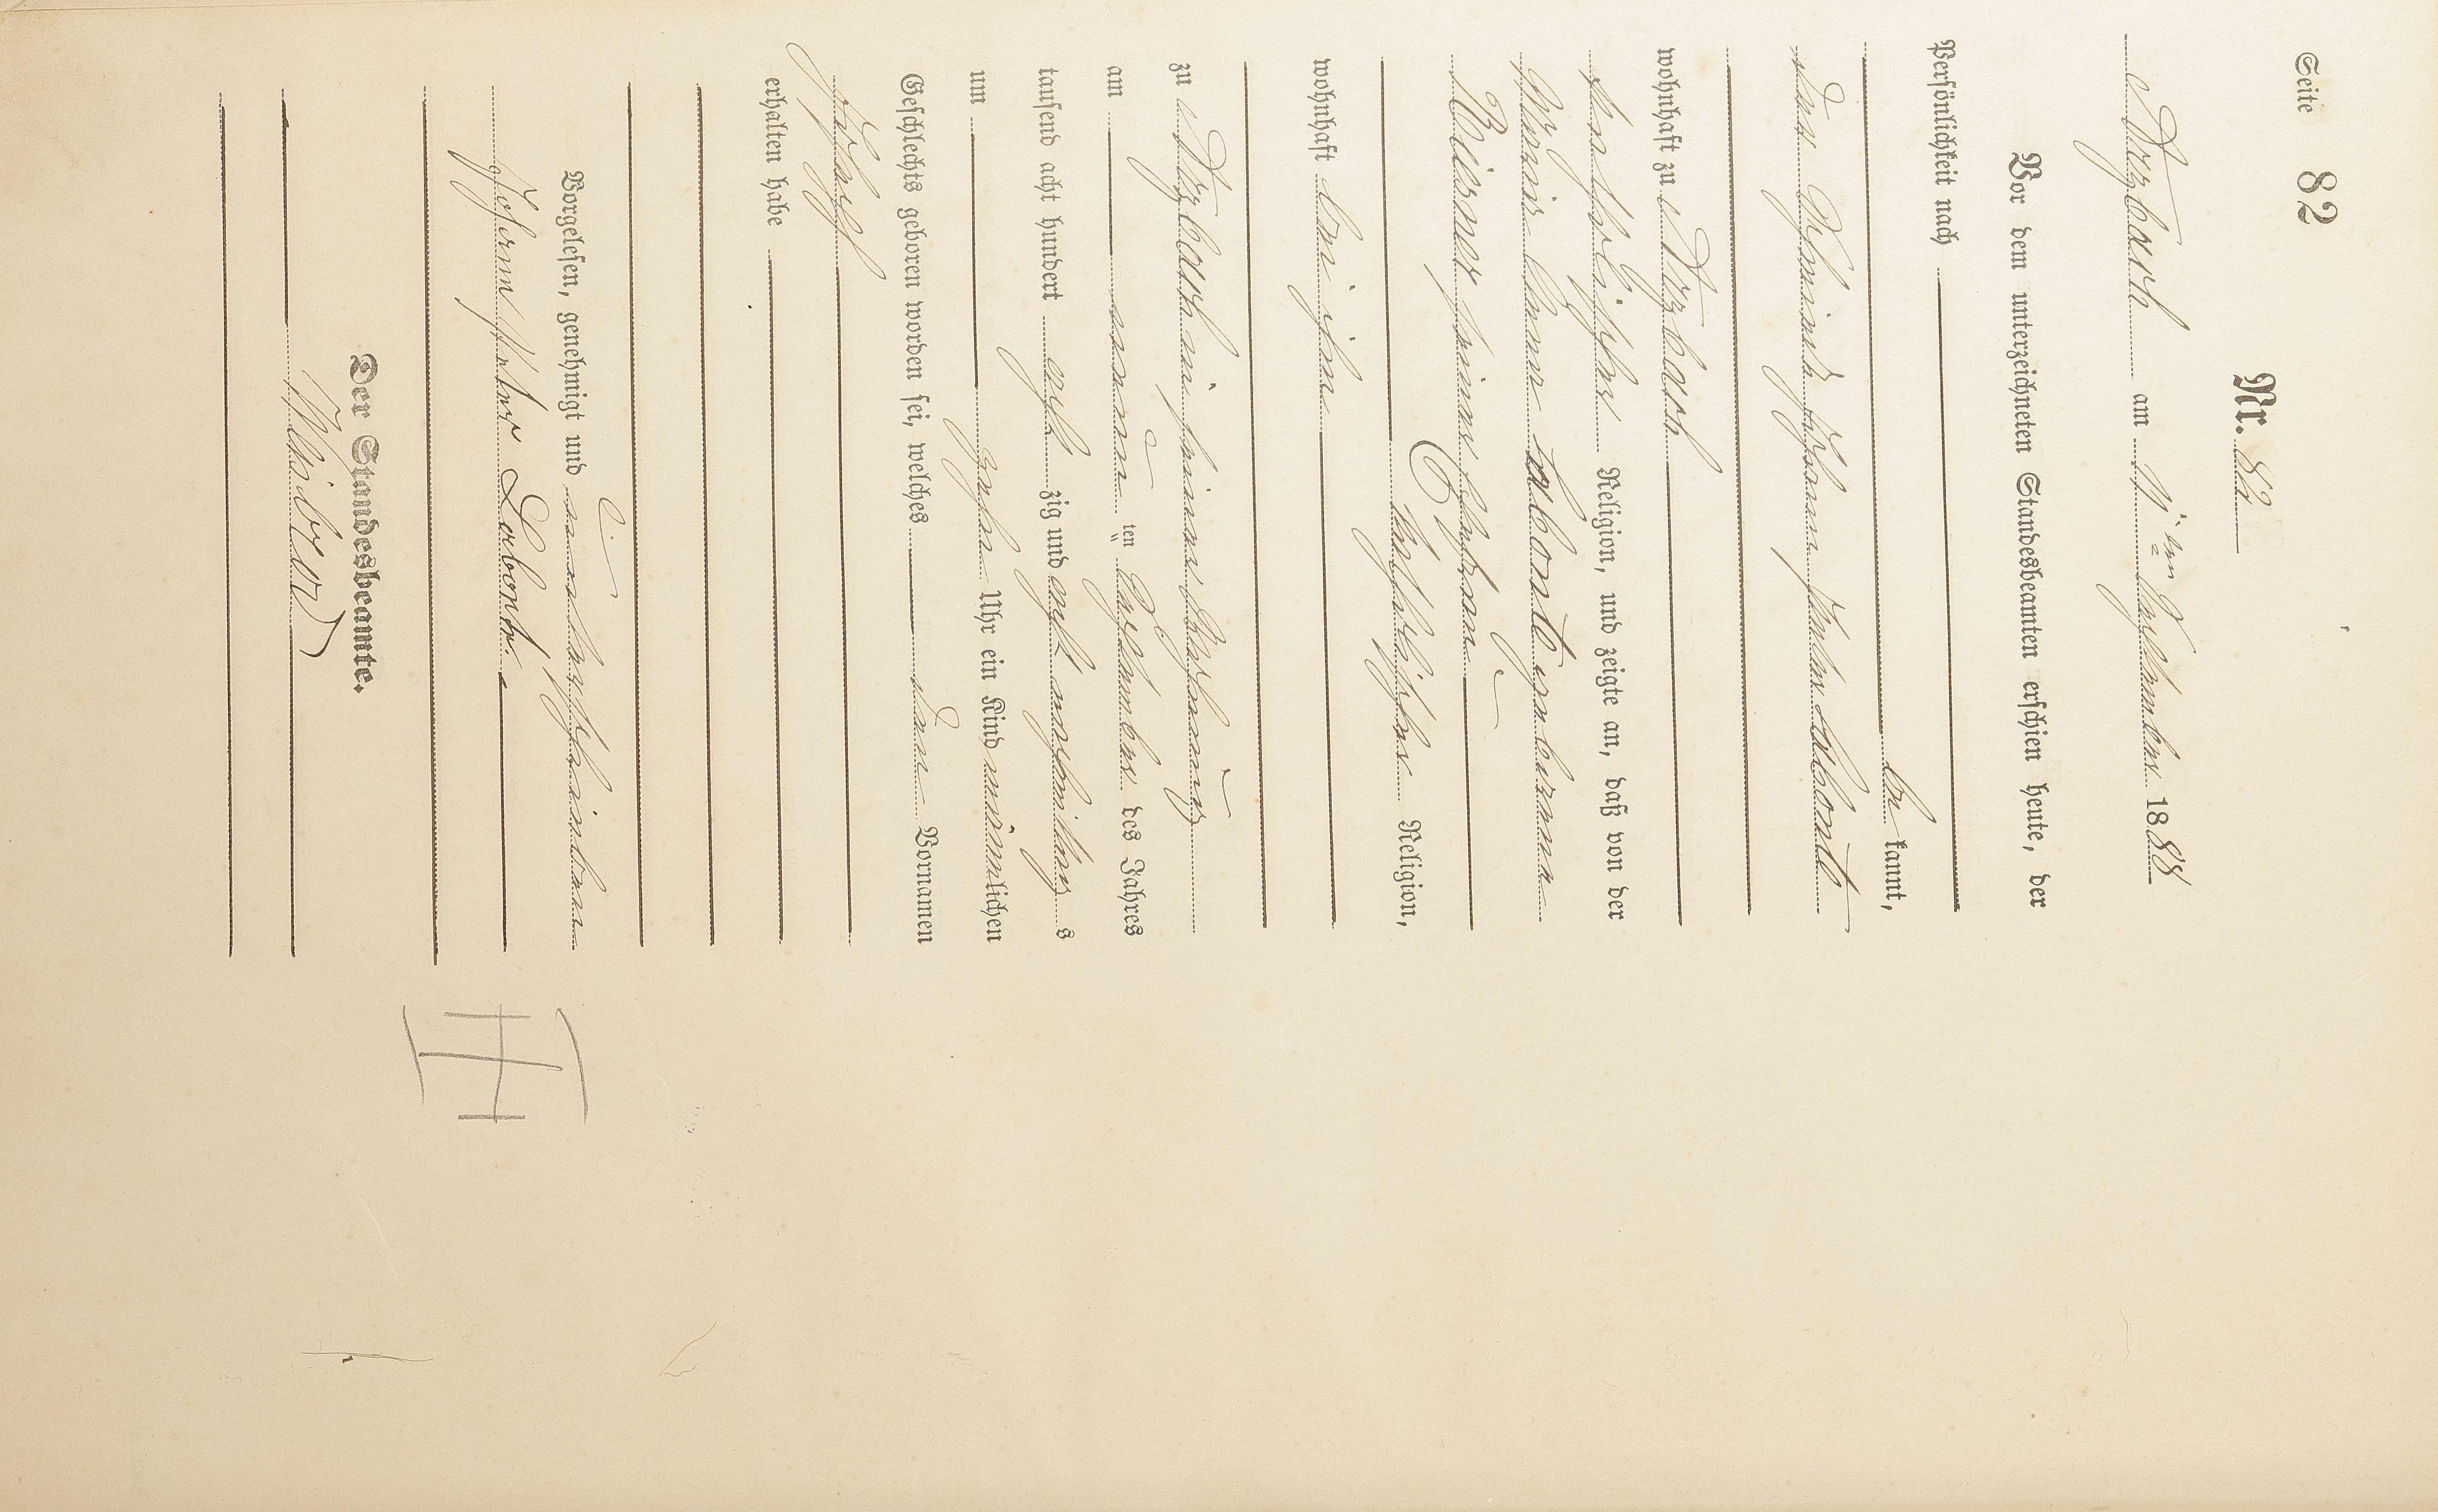 Seite 82
Nr. 82
Arzbach am 11ten September 1888
Vor dem unterzeichneten Standesbeamten erschien heute, der
Persönlichkeit nach
be kannt,
der Johann Peter Labonte
wohnhaft zu Arzbach
katholischer Religion, und zeigte an, daß von der
Labonte geborene
seiner Ehefrau
katholischer Religion,
wohnhaft bei ihm
zu Arzbach in seiner Wohnung
am neunten September des Jahres
tausend acht hundert acht zig und acht vormittags
um zehn Uhr ein Kind männlichen
Geschlechts geboren worden sei, welches den Vornamen
Joseph
erhalten habe
Vorgelesen, genehmigt und unterschrieben
Johann Peter Labonte.
Der Standesbeamte.
II